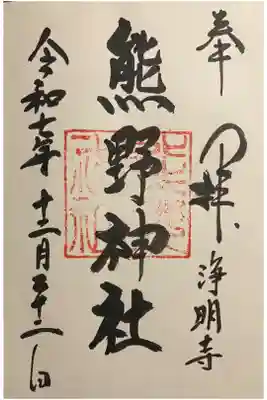 奉拝
浄明寺
熊野神社
令和七年十二月二十二日